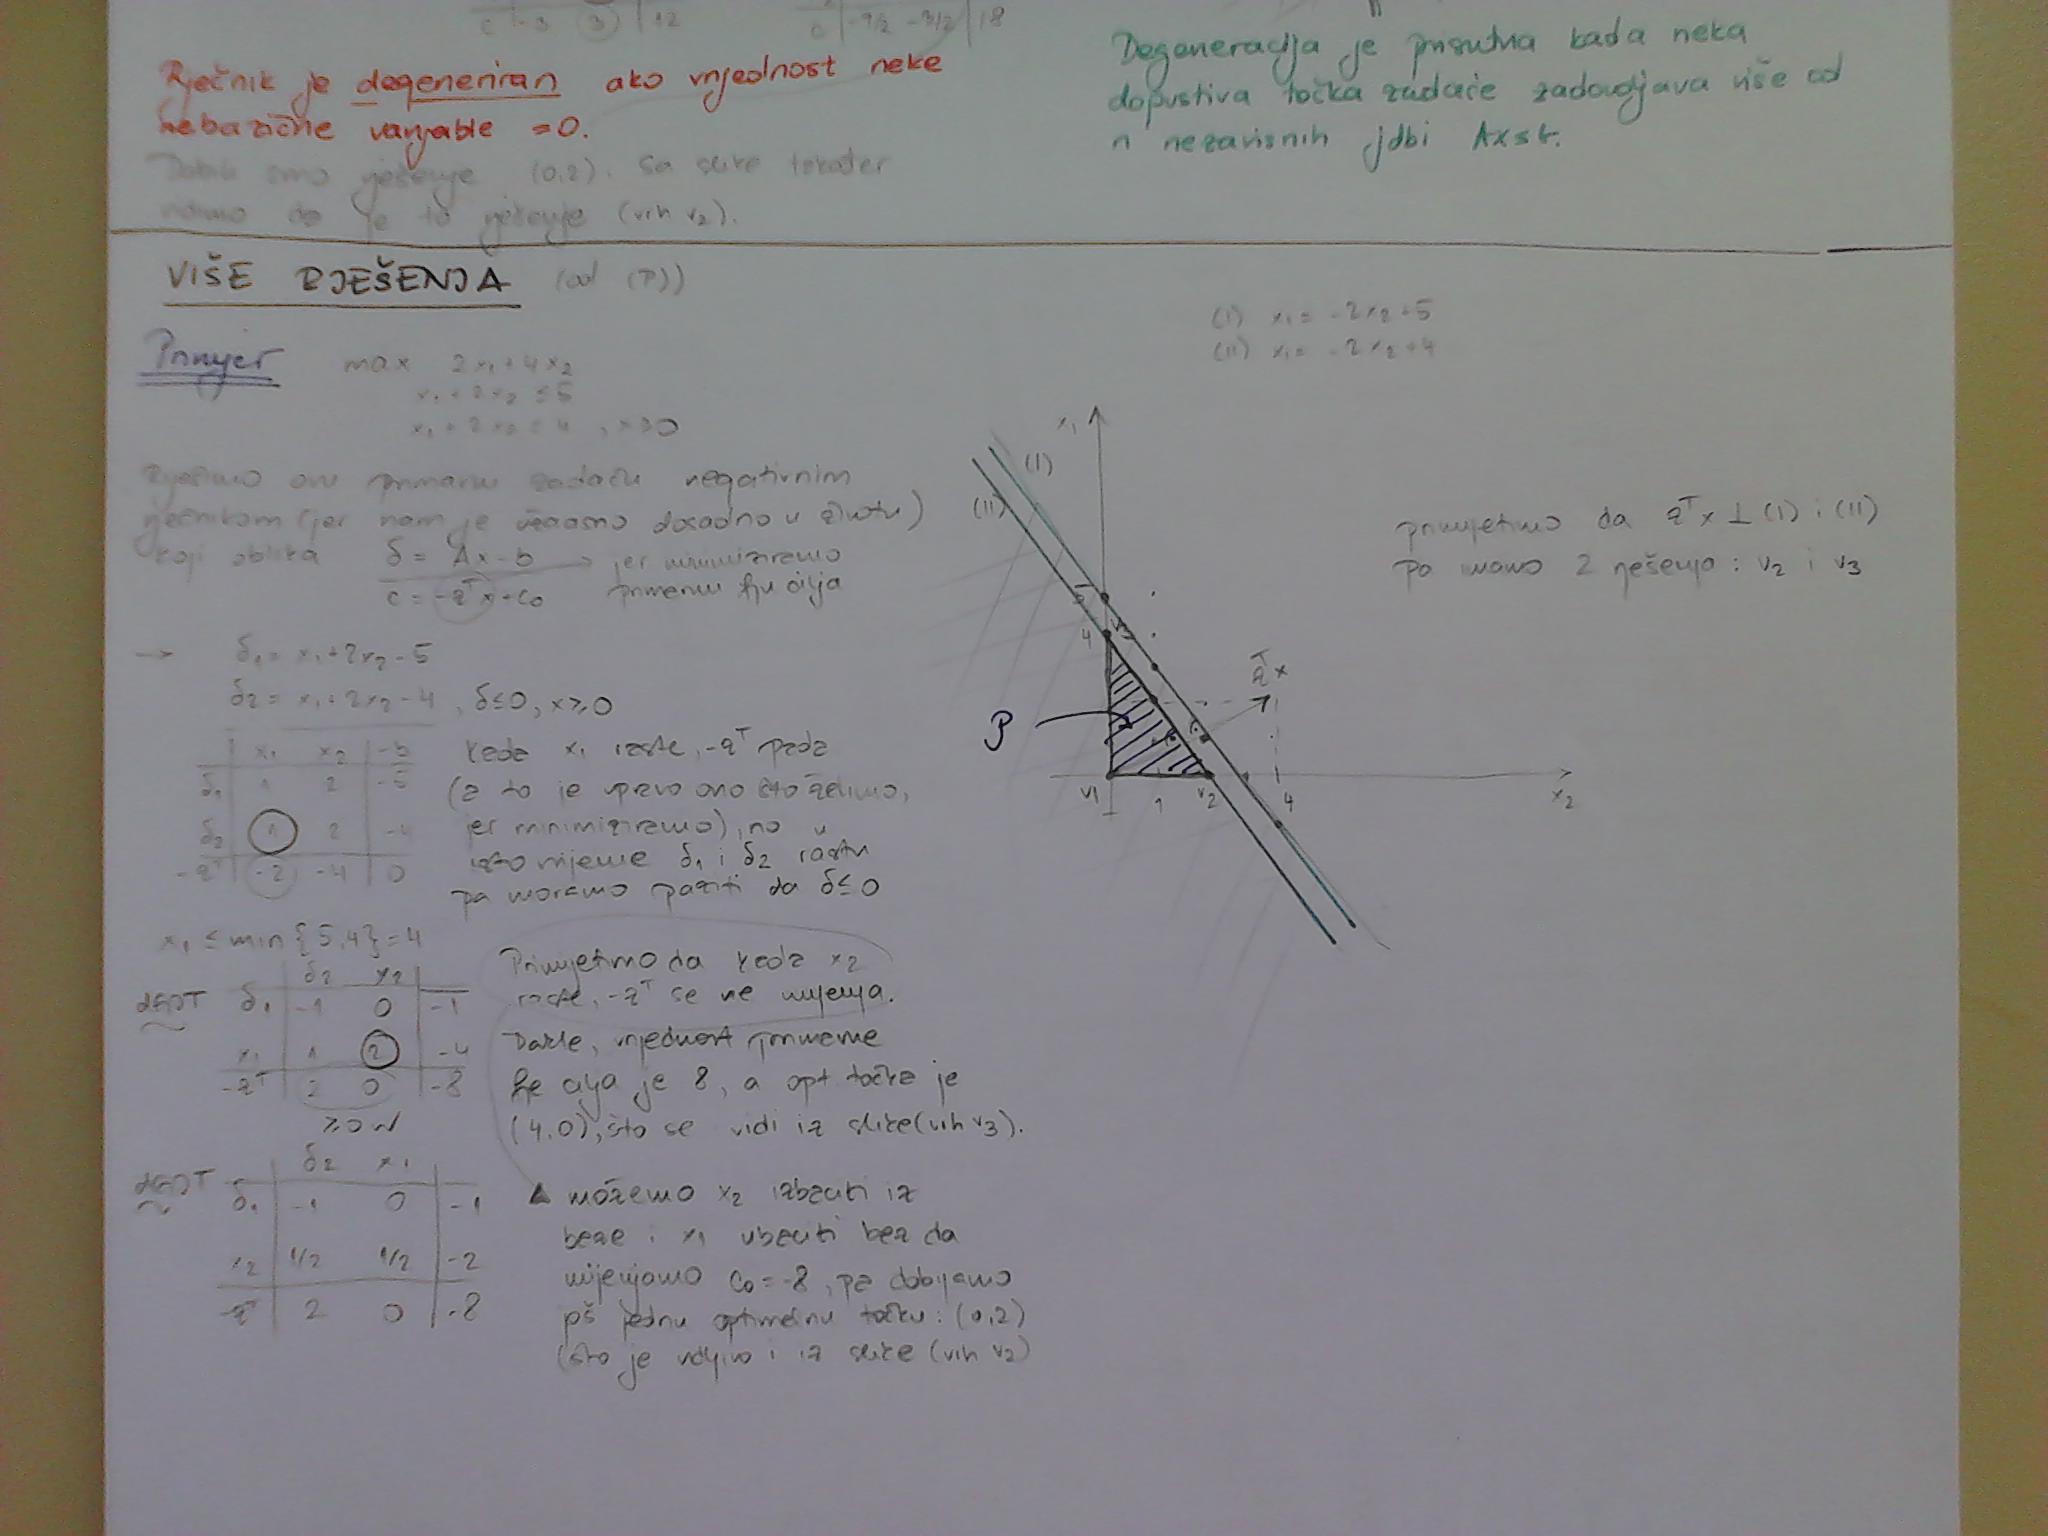 c | -3 (3) | 12
c | -9/2 -3/2 | 18
Rječnik je degeneriran ako vrijednost neke
nebazične varijable =0.
Dobili smo rješenje (0,2). Sa slike također
vidimo da je to rješenje (vrh v2).
Degeneracija je prisutna kada neka
dopustiva točka zadaće zadovoljava više od
n nezavisnih jdbi Ax≤b.
VIŠE RJEŠENJA (od (P))
Primjer max 2x1+4x2
x1+2x2 ≤5
x1+2x2 ≤ 4 , x≥0
Riješimo ovu primarnu zadaću negativnim
rječnikom (jer nam je užasno dosadno u životu)
koji oblika δ = Ax-b → jer minimiziramo
c = -z^T x + c0 primarnu fju cilja
→ δ1= x1+2x2-5
δ2= x1+2x2-4 , δ≤0, x≥0
x1 x2 -b
δ1 1 2 -5
δ2 (1) 2 -4
-z^T (-2) -4 0
kada x1 raste, -z^T pada
(a to je upravo ono što želimo,
jer minimiziramo), no u
isto vrijeme δ1 i δ2 rastu
pa moramo paziti da δ≤0
x1 ≤ min {5,4} = 4
δ2 x2
δ1 -1 0 -1
x1 1 (2) -4
-z^T 2 0 -8
≥0 ✓
Primjetimo da kada x2
raste, -z^T se ne mijenja.
Dakle, vrijednost primarne
fje cilja je 8, a opt točka je
(4,0), što se vidi iz slike (vrh v3).
δ2 x1
δ1 -1 0 -1
x2 1/2 1/2 -2
-z^T 2 0 -8
▲ možemo x2 izbaciti iz
baze i x1 ubaciti bez da
mijenjamo c0=-8, pa dobijamo
još jednu optimalnu točku: (0,2)
(što je vidljivo i iz slike (vrh v2)
(I) x1= -2x2+5
(II) x1= -2x2+4
x1
(I)
(II)
5
4 v3
z^T x
P
v1 1 v2 4
x2
primjetimo da z^T x ⊥ (I) i (II)
pa imamo 2 rješenja: v2 i v3